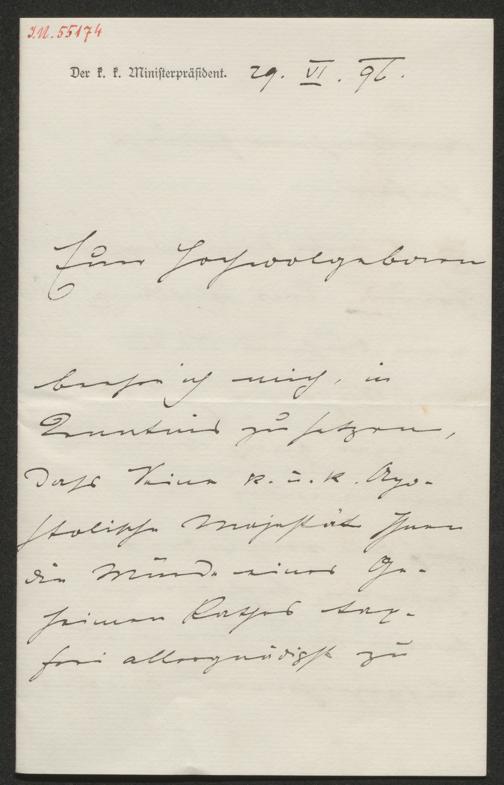 I.N. 55174
Der k. k. Ministerpräsident. 29. VI. 96.
Euer Hochwolgeboren
beehre ich mich, in
Kenntnis zu setzen,
daß Seine k. u. k. Apo-
stolische Majestät Ihnen
die Würde eines Ge-
heimen Rathes tax-
frei allergnädigst zu